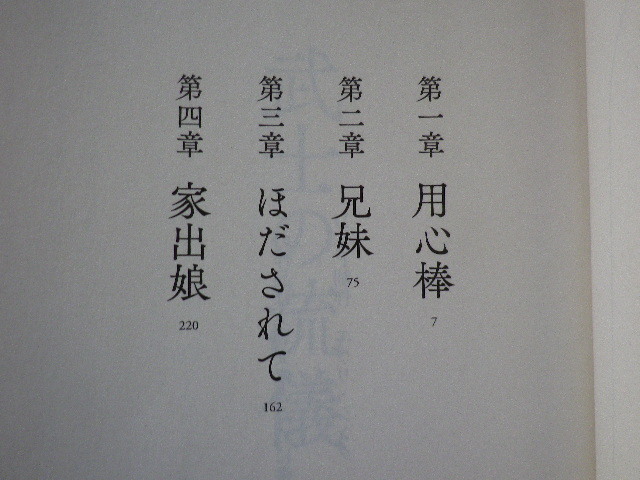 第一章 用心棒 7
第二章 兄妹 75
第三章 ほだされて 162
第四章 家出娘 220